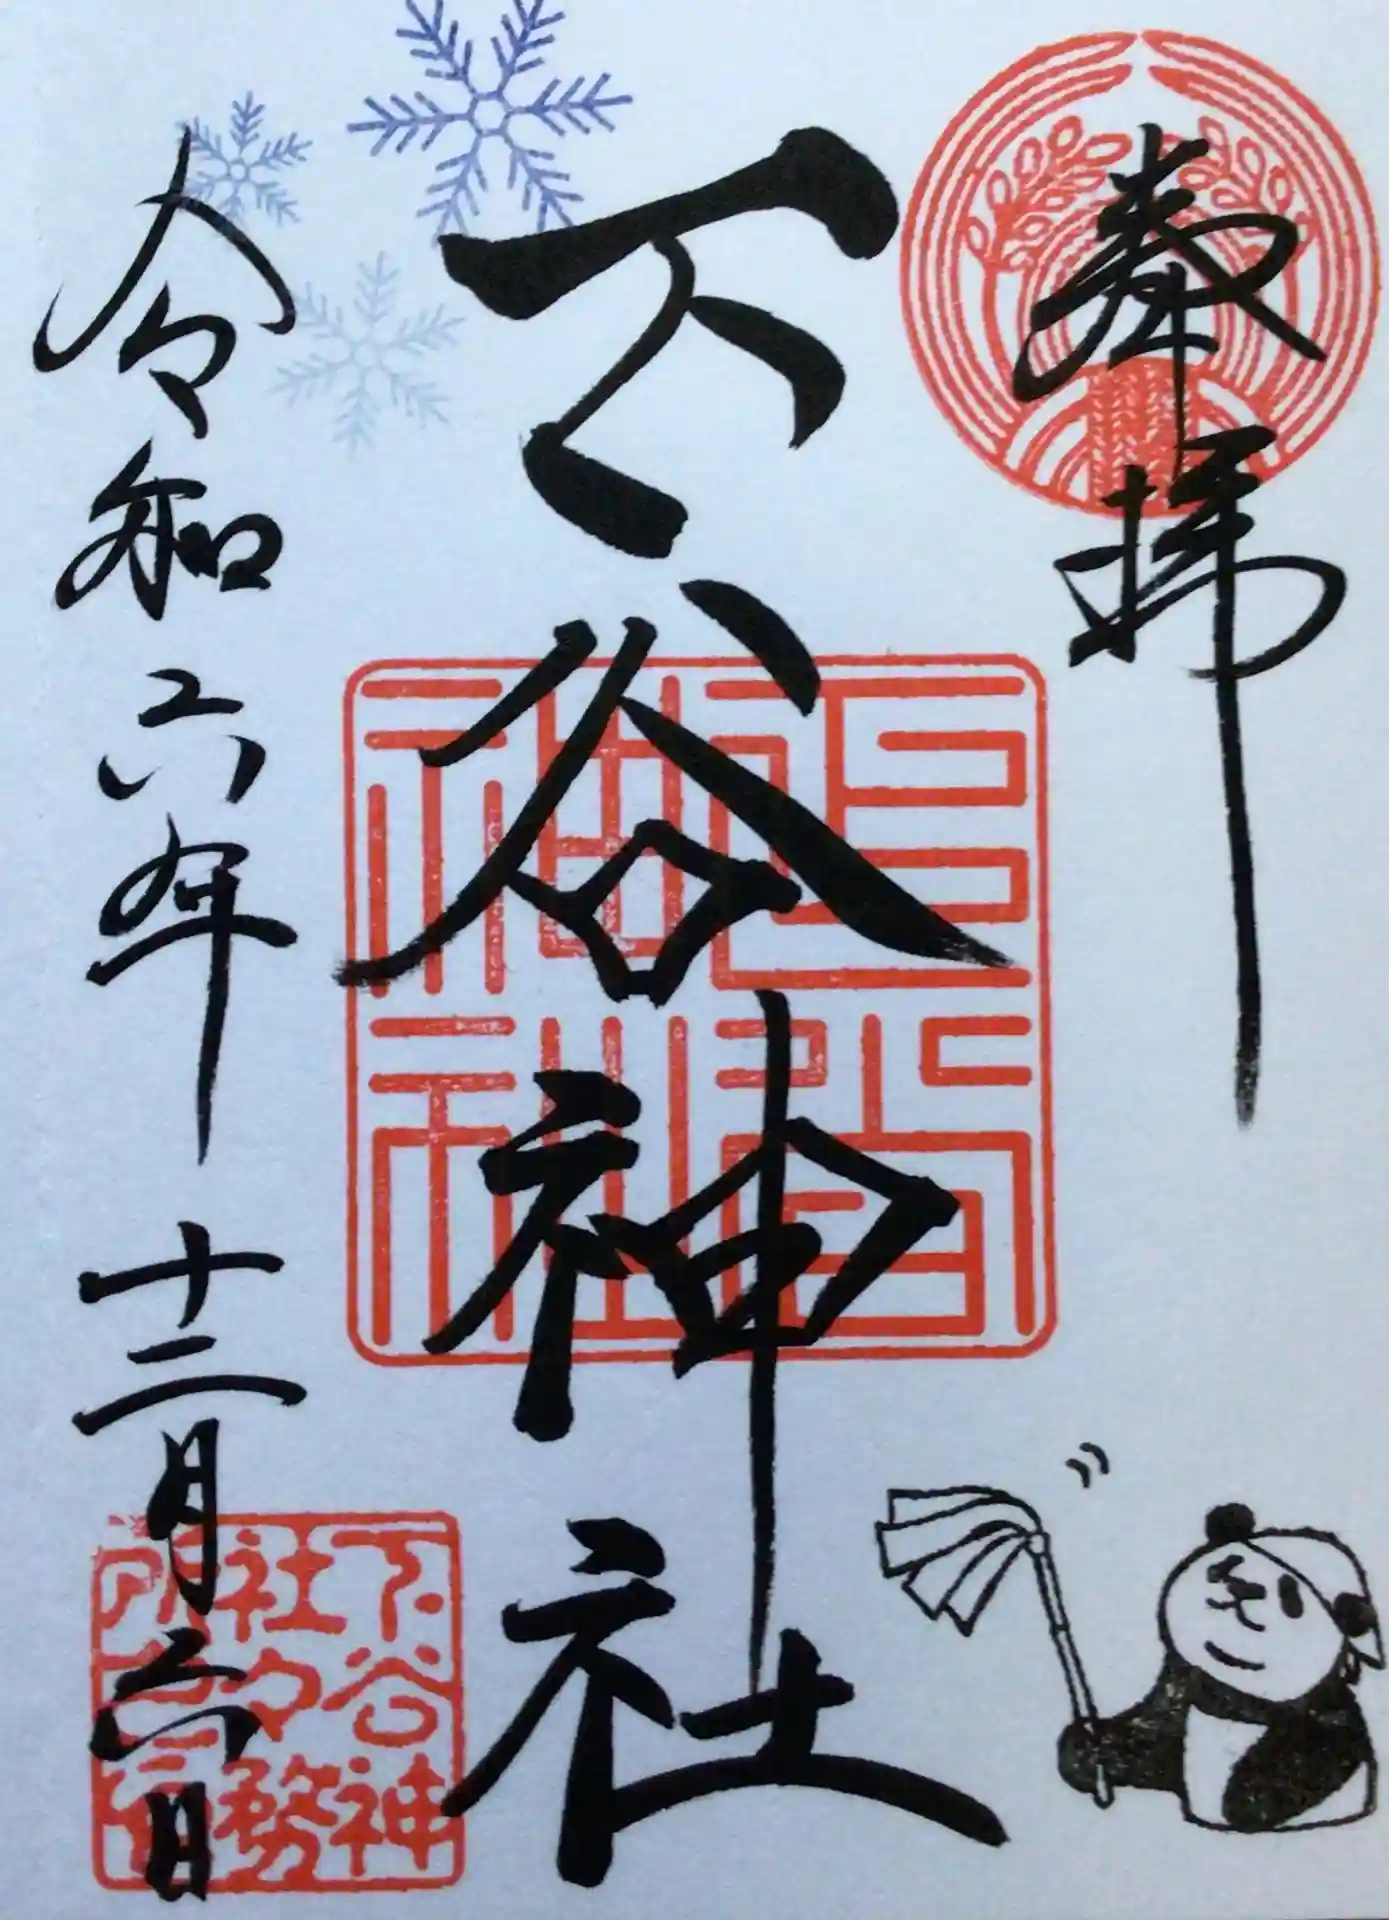 奉拝
下谷神社
令和六年 十二月六日
下谷神
社々務
所之印
下谷
神社